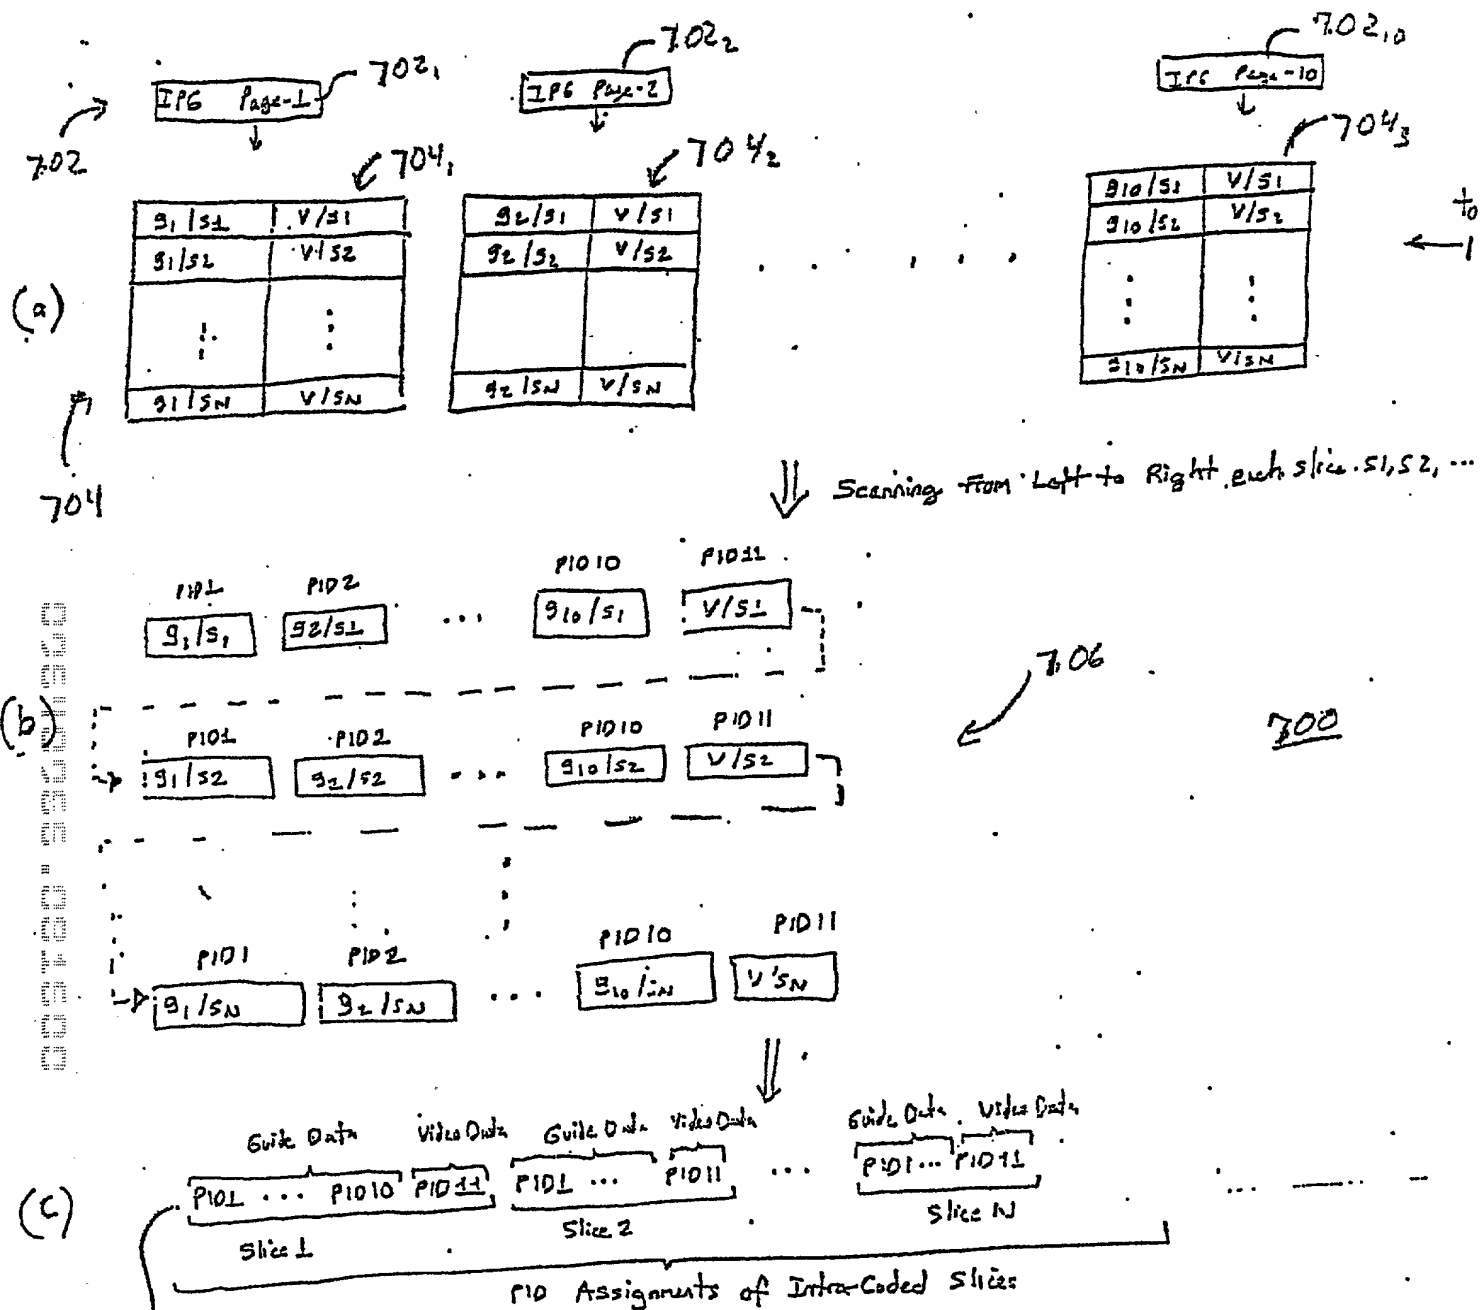 702₁ 702₂ 702₁₀
IPG Page-1 IPG Page-2 IPG Page-10
702 704₁ 704₂ 704₃
g₁/s1 V/s1 g₂/s1 V/s1 g₁₀/s1 V/s1
g₁/s2 V/s2 g₂/s₂ V/s2 g₁₀/s2 V/s₂
t₀
(a)
g1/sN V/sN g₂/sN V/sN g₁₀/sN V/sN
704
Scanning From Left to Right each slice S1, S2, ...
PID1 PID2 ... PID10 PID11
g₁/s₁ g2/s1 ... g₁₀/s₁ V/s1
706
(b)
PID1 PID2 PID10 PID11
700
g₁/s2 g₂/s2 ... g₁₀/s2 V/s2
PID1 PID2 PID10 PID11
g₁/sN g₂/sN ... g₁₀/sN V/sN
Guide Data Video Data Guide Data Video Data Guide Data Video Data
(c)
PID1 ... PID10 PID11 PID1 ... PID11 ... PID1 ... PID11 ...
Slice 1 Slice 2 Slice N
PID Assignments of Intra-Coded Slices